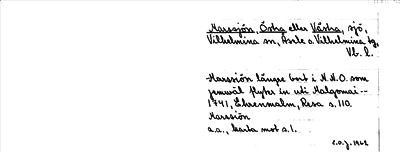 Marssjön, Östra eller Västra, sjö,
Vilhelmina sn, Åsele o. Vilhelmina tg,
Vb. l.
Marssión längre bort i N.N.O. som
jemwäl flyter in uti Malgomai --
1741, Ehrenmalm, Resa s. 110.
Marssión
a.a., karta mot s. 1.
C.O.J. 1962